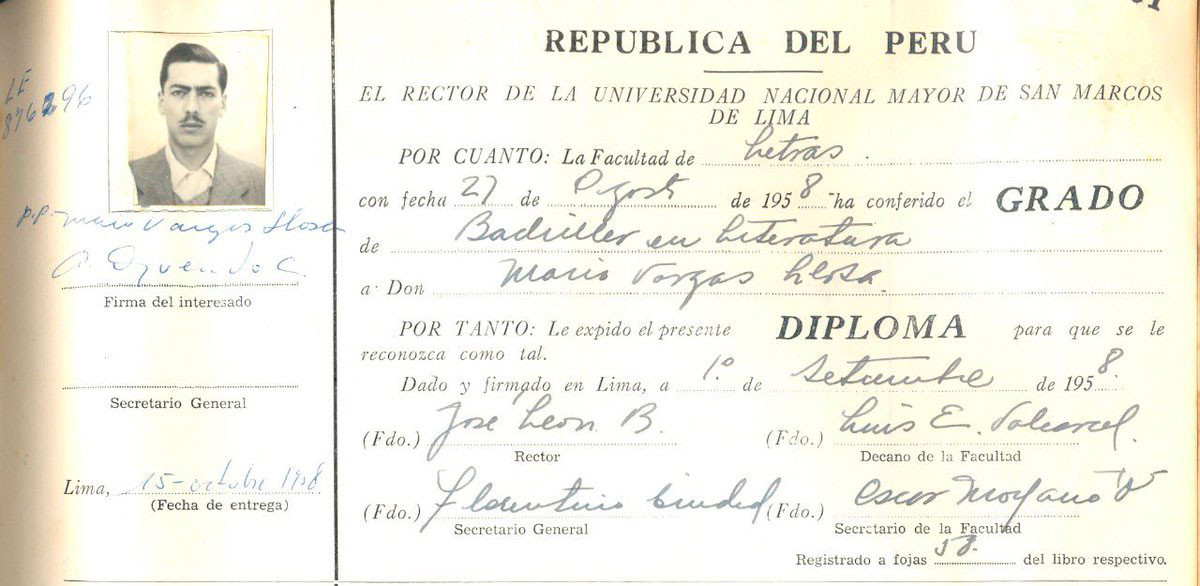 LE
876296
p.p. Mario Vargas Llosa
Firma del interesado
Secretario General
Lima, 15 - octubre 1958
(Fecha de entrega)
REPUBLICA DEL PERU
EL RECTOR DE LA UNIVERSIDAD NACIONAL MAYOR DE SAN MARCOS
DE LIMA
POR CUANTO: La Facultad de Letras
con fecha 27 de Agosto de 1958 ha conferido el GRADO
de Bachiller en Literatura
a Don Mario Vargas Llosa.
POR TANTO: Le expido el presente DIPLOMA para que se le
reconozca como tal.
Dado y firmado en Lima, a 1º de Setiembre de 1958.
(Fdo.) José León B. (Fdo.) Luis E. Valcarcel.
Rector Decano de la Facultad
(Fdo.) Florentino (Fdo.)
Secretario General Secretario de la Facultad
Registrado a fojas 58. del libro respectivo.